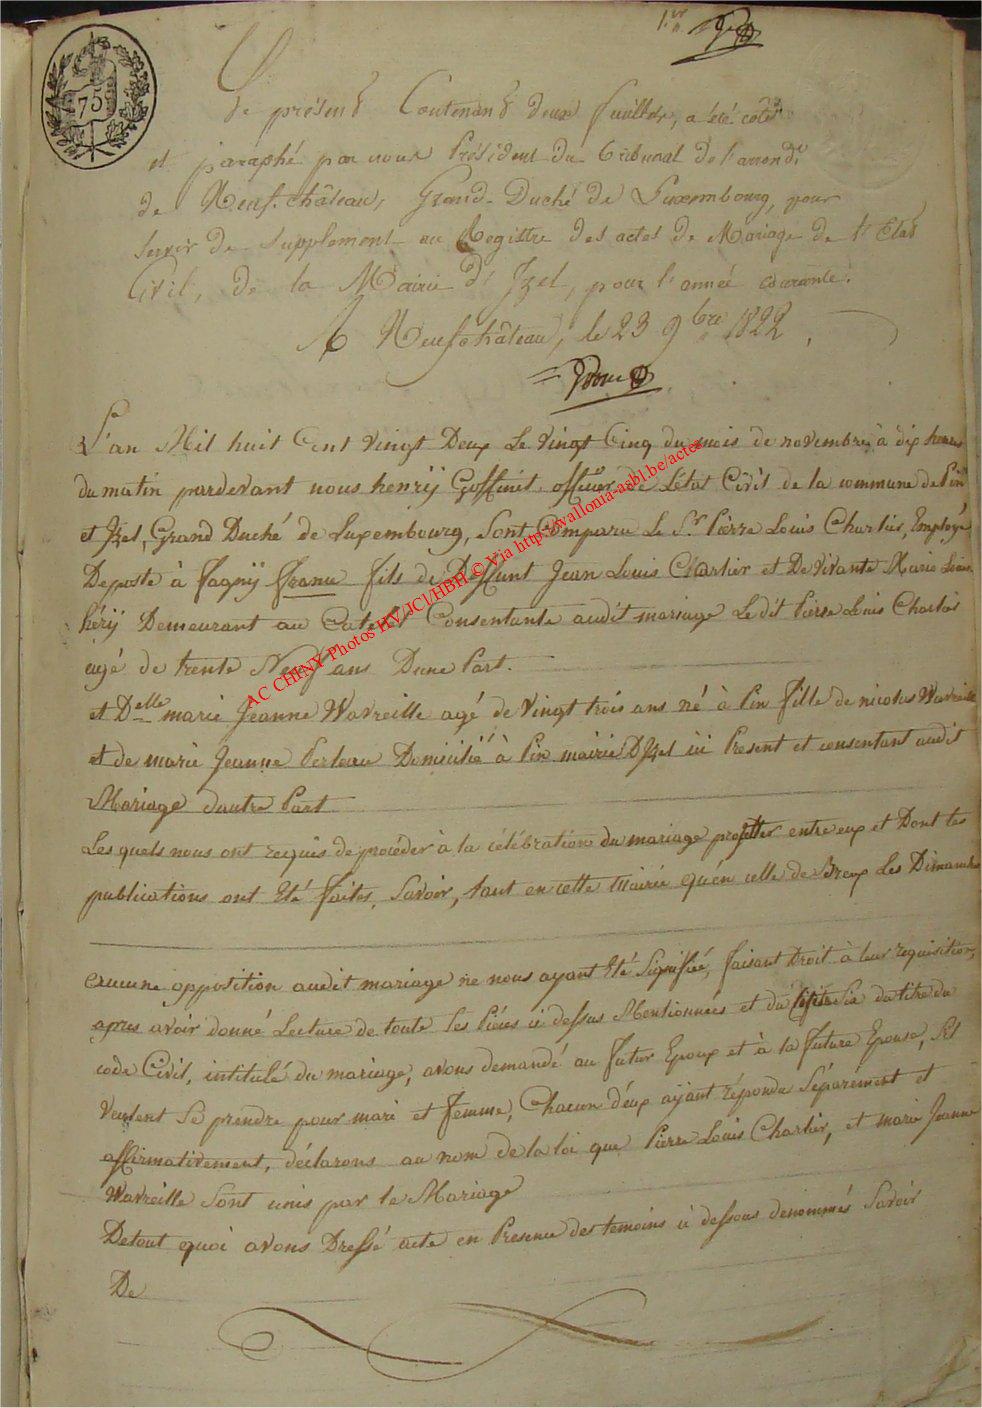 1.er
75
Le présent Contenant deux feuilles, a été coté
et paraphé par nous Président du Tribunal de l'arrondt
de Neufchâteau, Grand-Duché de Luxembourg, pour
servir de Supplément au Registre des actes de Mariage de l'Etat
Civil, de la Mairie d'Izel, pour l'année courante.
A Neufchâteau, le 23 9bre 1822.
L'an Mil huit Cent vingt Deux Le vingt Cinq du mois de novembre à dix heures
du matin pardevant nous henrÿ Goffinet officier de L'état Civil de la commune de Pin
et Izel, Grand Duché de Luxembourg, Sont Comparu Le Sr Pierre Louis Charlier, Employé
De poste à fagnÿ france fils de Deffunt Jean Louis Charlier et De Vivante Marie Louise
hérÿ Demeurant au Catelet Consentante audit mariage Ledit Pierre Louis Charlier
agé de trente Neuf ans Dune Part.
et Delle marie Jeanne Wavreille agé de Vingt trois ans né à Pin fille de nicolas Wavreille
et de marie Jeanne Perleau Domicilié à Pin mairie D'Izel ici Present et consentant audit
Mariage dautre Part
Les quels nous ont requis de procéder à la célébration du mariage projetter entre eux et Dont les
publications ont Eté faites, Savoir, tant en cette Mairie qu'en celle de Breux Les Dimanches
aucune opposition audit mariage ne nous ayant Eté Signifiée, faisant Droit à leur requisition,
apres avoir donné Lecture de toute Les Pièces ci dessus Mentionnées et du du titre du
code Civil, intitulé du mariage, avons demandé au futur Epoux et à la future Epouse, Sil
veulent Se prendre pour mari et femme, Chacun d'eux aÿant répondu Séparément et
affirmativement, déclarons au nom de la loi que Pierre Louis Charlier, et marie Jeanne
Wavreille Sont unis par le Mariage
Detout quoi avons Dressé acte en Presence des temoins ci dessous denommés Savoir
De
AC CHINY Photos HV/JCl/HBH © Via http://wallonia-asbl.be/actes